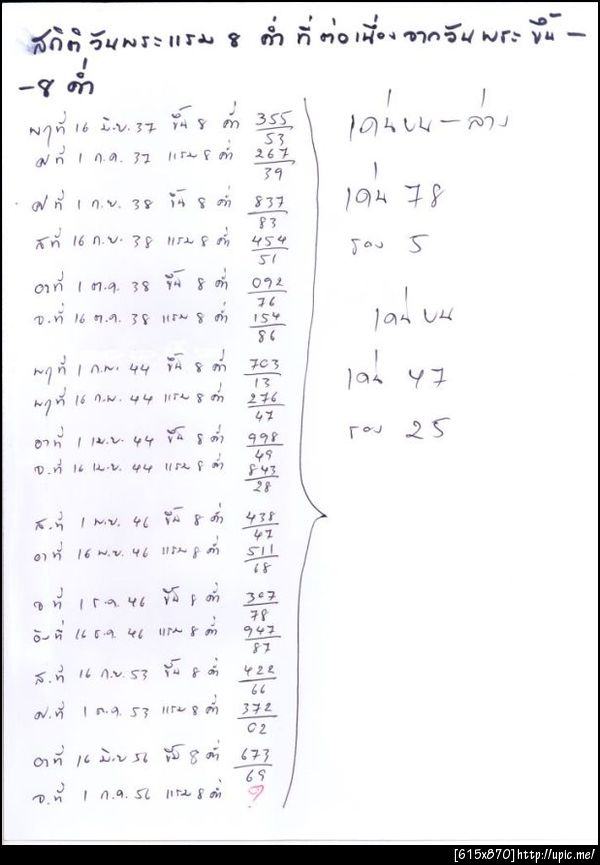 สถิติวันพระแรม 8 ค่ำ ที่ต่อเนื่องจากวันพระขึ้น -
- 8 ค่ำ
พฤที่ 16 มิ.ย. 37 ขึ้น 8 ค่ำ 355
53
ศ ที่ 1 ก.ค. 37 แรม 8 ค่ำ 267
39
ศ ที่ 1 ก.ย. 38 ขึ้น 8 ค่ำ 837
83
ส ที่ 16 ก.ย. 38 แรม 8 ค่ำ 454
51
อาที่ 1 ต.ค. 38 ขึ้น 8 ค่ำ 092
76
จ.ที่ 16 ต.ค. 38 แรม 8 ค่ำ 154
86
พฤที่ 1 ก.พ. 44 ขึ้น 8 ค่ำ 703
13
พฤที่ 16 ก.พ. 44 แรม 8 ค่ำ 276
47
อาที่ 1 เม.ย. 44 ขึ้น 8 ค่ำ 998
49
จ.ที่ 16 เม.ย. 44 แรม 8 ค่ำ 843
28
ส.ที่ 1 พ.ย. 46 ขึ้น 8 ค่ำ 438
47
อาที่ 16 พ.ย. 46 แรม 8 ค่ำ 511
68
จ ที่ 1 ธ.ค. 46 ขึ้น 8 ค่ำ 307
78
อังที่ 16 ธ.ค. 46 แรม 8 ค่ำ 947
87
ส.ที่ 16 ก.ย. 53 ขึ้น 8 ค่ำ 422
66
ศ.ที่ 1 ต.ค. 53 แรม 8 ค่ำ 372
02
อาที่ 16 มิ.ย 56 ขึ้น 8 ค่ำ 673
69
จ.ที่ 1 ก.ค. 56 แรม 8 ค่ำ ?
เด่นบน - ล่าง
เด่น 78
รอง 5
เด่นบน
เด่น 47
รอง 25
[615x870]http://upic.me/